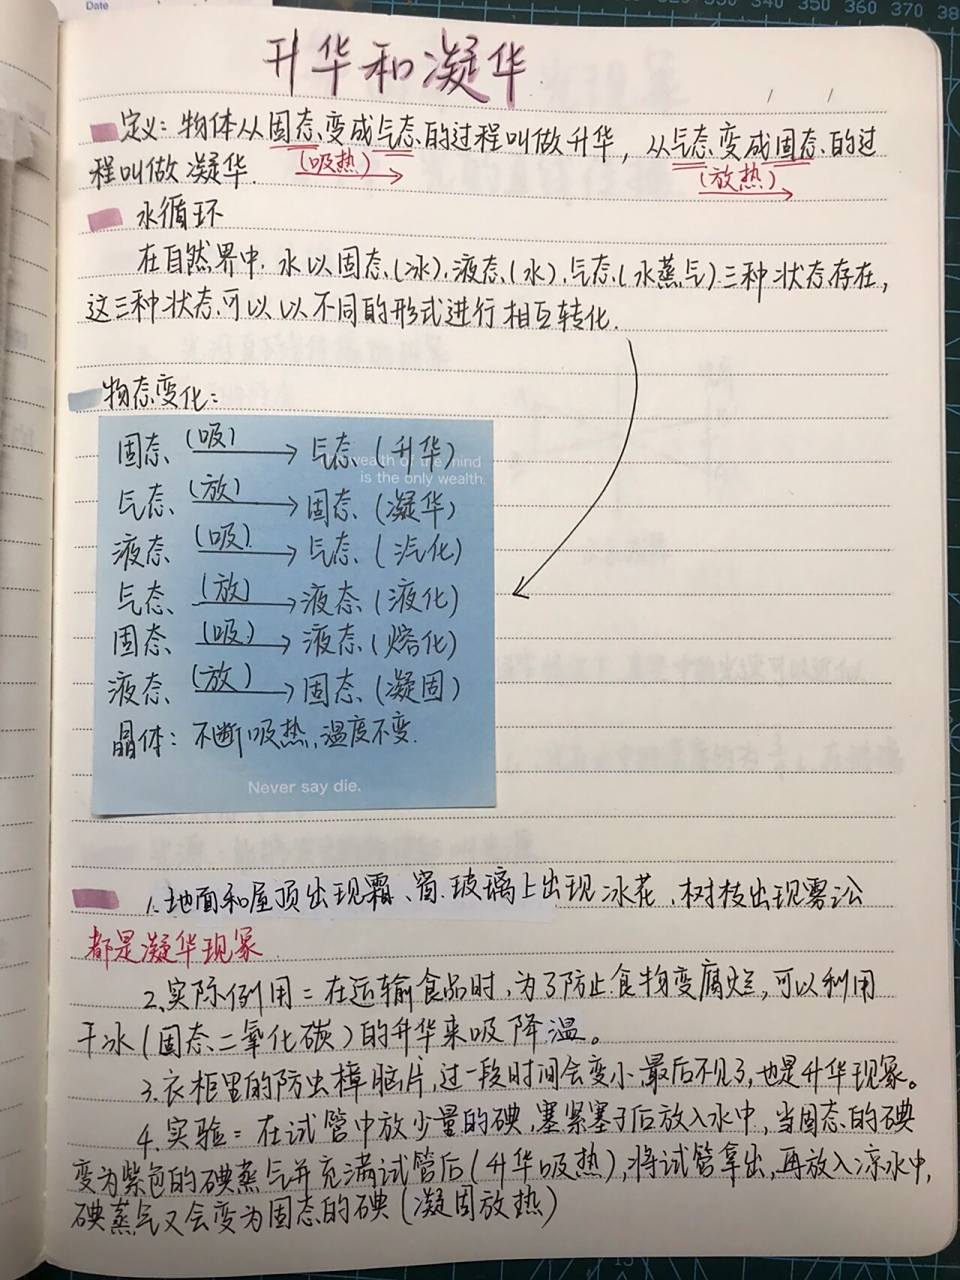 Date
330 340 350 360 370 38
升华和凝华
定义：物体从固态变成气态的过程叫做升华，从气态变成固态的过
(吸热) (放热)
程叫做凝华.
水循环
在自然界中.水以固态(冰).液态(水).气态(水蒸气)三种状态存在,
这三种状态可以以不同的形式进行相互转化.
物态变化：
固态 (吸) → 气态 (升华)
The wealth of the mind
is the only wealth.
气态 (放) → 固态 (凝华)
液态 (吸) → 气态 (汽化)
气态 (放) → 液态 (液化)
固态 (吸) → 液态 (熔化)
液态 (放) → 固态 (凝固)
晶体：不断吸热,温度不变.
Never say die.
1.地面和屋顶出现霜、窗.玻璃上出现冰花、树枝出现雾凇
都是凝华现象
2.实际例用=在运输食品时,为了防止食物变腐烂,可以利用
干冰(固态二氧化碳)的升华来吸降温。
3.衣柜里的防虫樟脑片,过一段时间会变小最后不见了,也是升华现象。
4.实验=在试管中放少量的碘,塞紧塞子后放入水中,当固态的碘
变为紫色的碘蒸气并充满试管后(升华吸热),将试管拿出,再放入凉水中,
碘蒸气又会变为固态的碘(凝固放热)